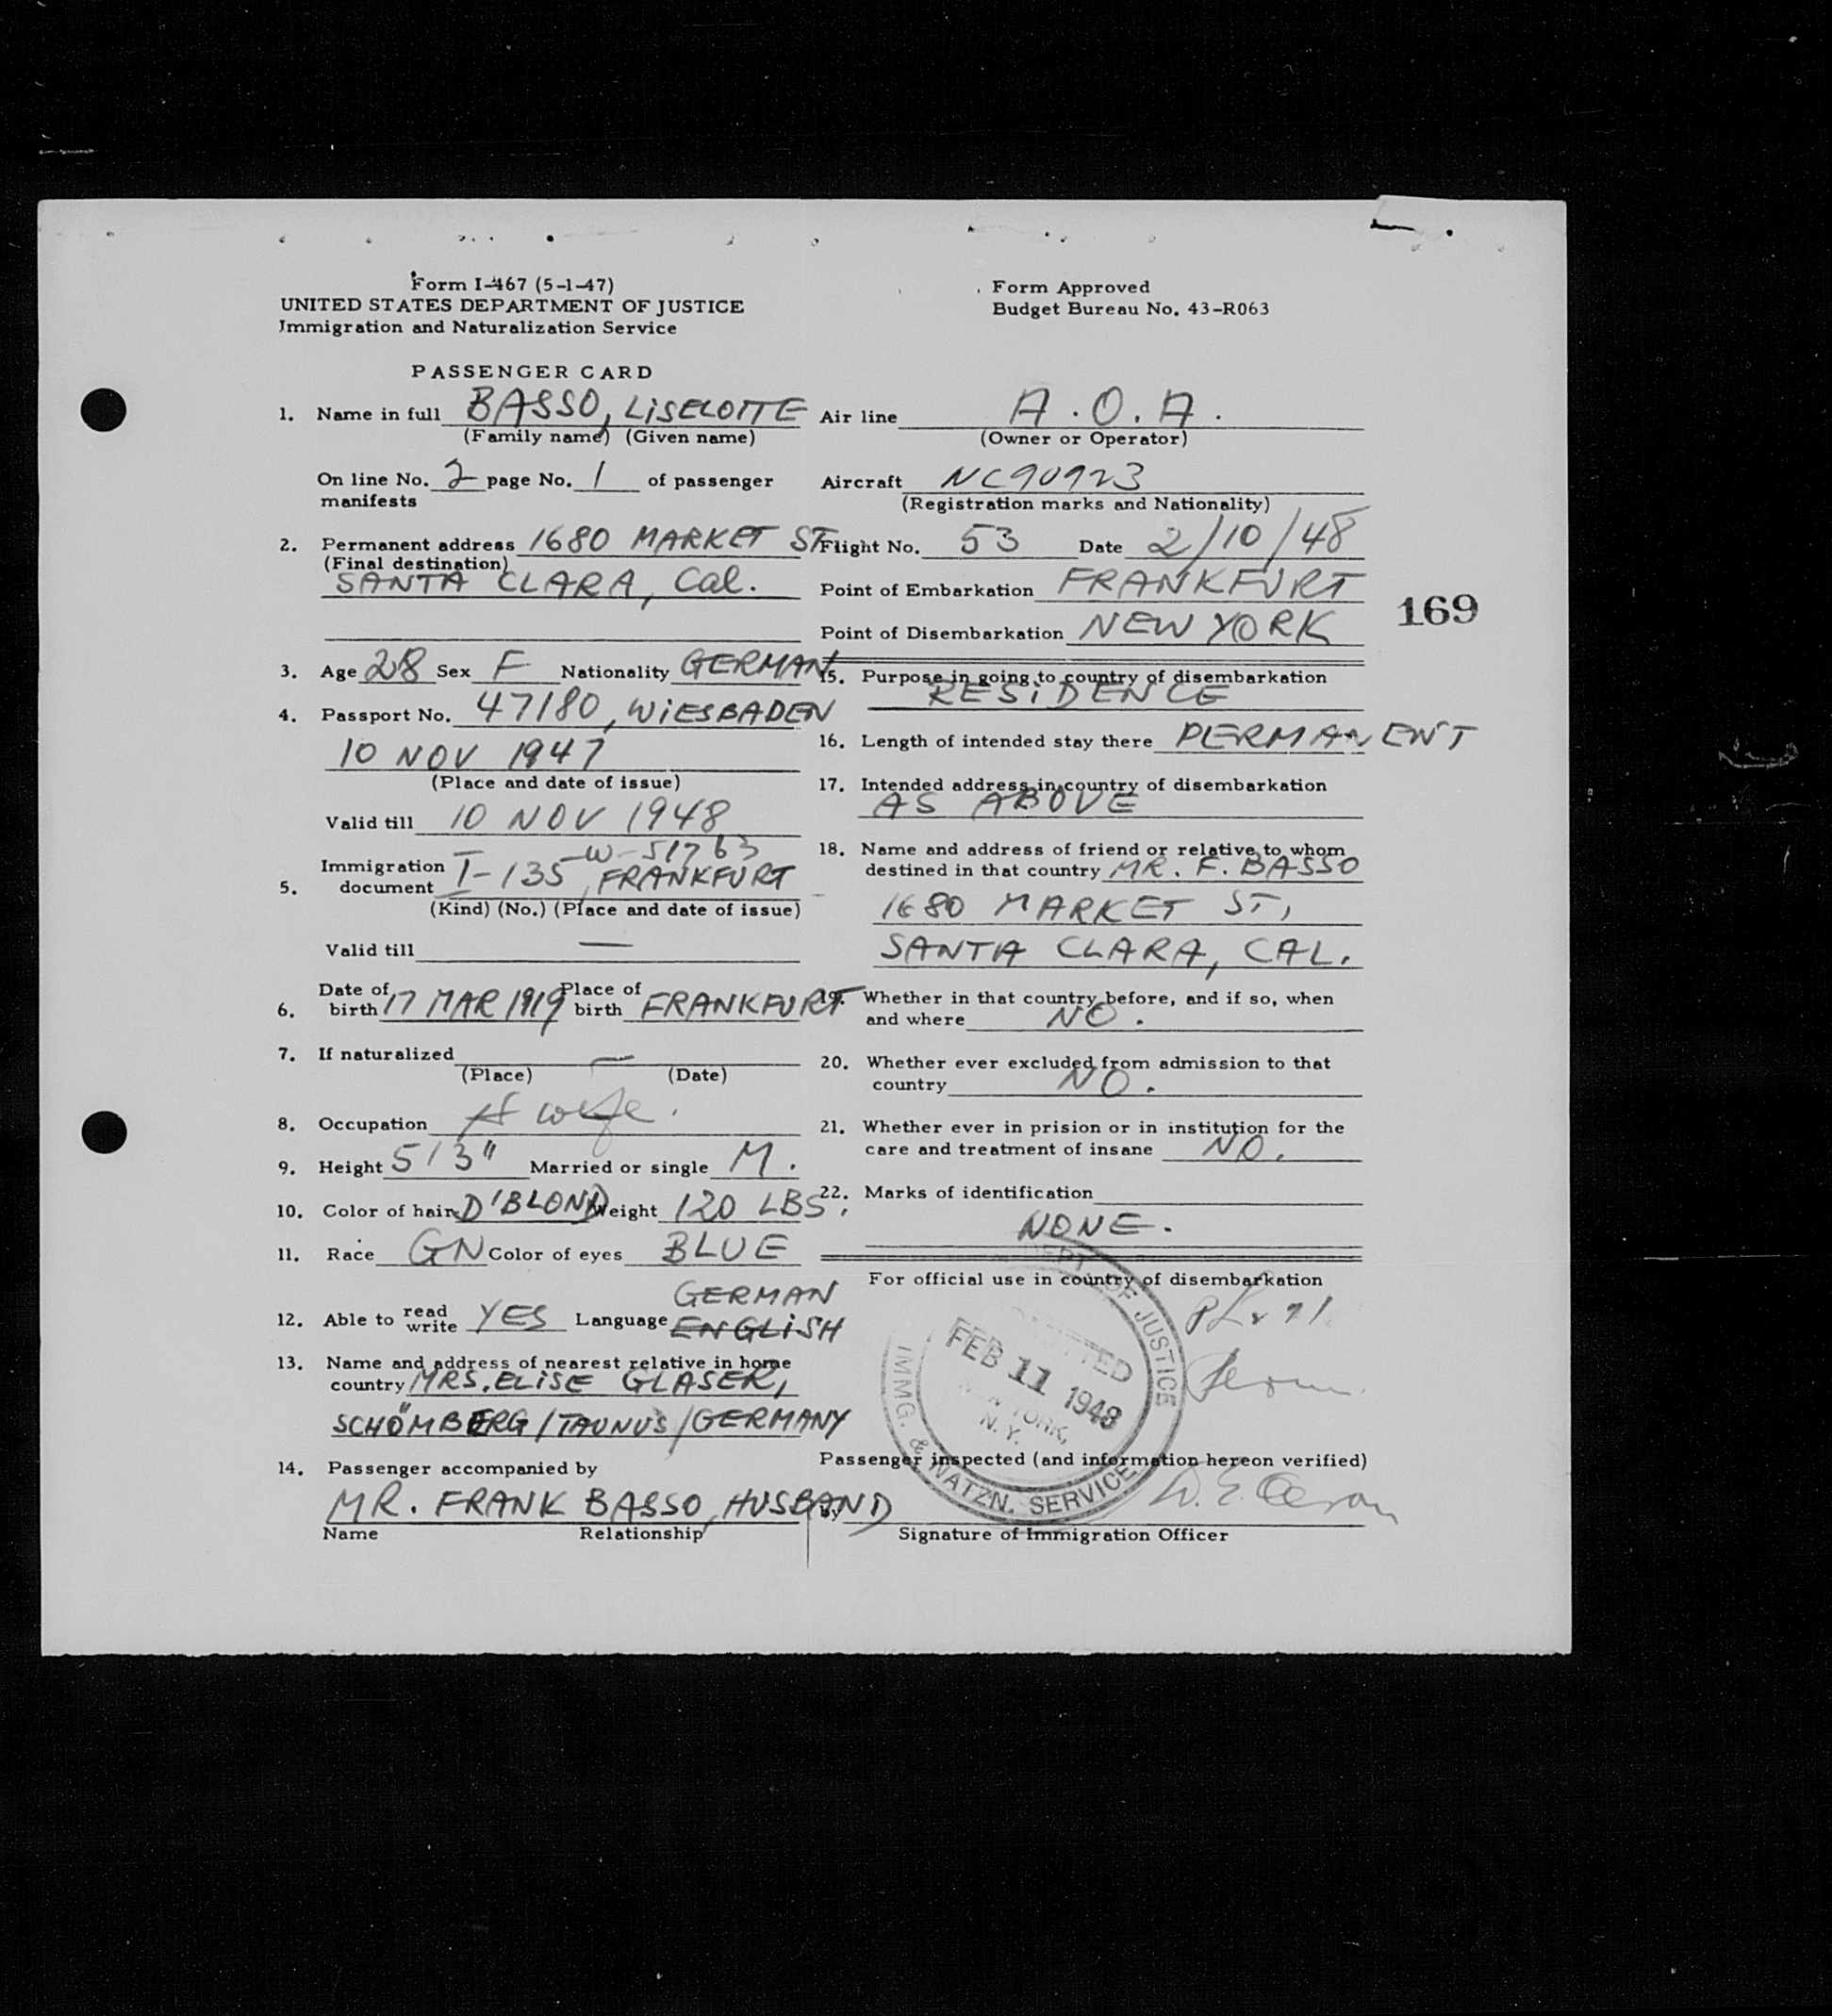 Form I-467 (5-1-47)
UNITED STATES DEPARTMENT OF JUSTICE
Immigration and Naturalization Service
Form Approved
Budget Bureau No. 43-R063
PASSENGER CARD
1. Name in full BASSO, LISELOTTE
(Family name) (Given name)
On line No. 2 page No. 1 of passenger
manifests
2. Permanent address 1680 MARKET ST
(Final destination)
SANTA CLARA, Cal.
3. Age 28 Sex F Nationality GERMAN
4. Passport No. 47180, WIESBADEN
10 NOV 1947
(Place and date of issue)
Valid till 10 NOV 1948
W-51763
5. Immigration document I-135, FRANKFURT
(Kind) (No.) (Place and date of issue)
Valid till —
6. Date of birth 17 MAR 1919 Place of birth FRANKFURT
7. If naturalized —
(Place) (Date)
8. Occupation H wife.
9. Height 5'3" Married or single M.
10. Color of hair D'BLOND Weight 120 LBS.
11. Race GN Color of eyes BLUE
GERMAN
12. Able to read write YES Language ENGLISH
13. Name and address of nearest relative in home
country MRS. ELISE GLASER,
SCHÖMBERG/TAUNUS/GERMANY
14. Passenger accompanied by
MR. FRANK BASSO, HUSBAND
Name Relationship
Air line A.O.A.
(Owner or Operator)
Aircraft NC90923
(Registration marks and Nationality)
Flight No. 53 Date 2/10/48
Point of Embarkation FRANKFURT
Point of Disembarkation NEW YORK
169
15. Purpose in going to country of disembarkation
RESIDENCE
16. Length of intended stay there PERMANENT
17. Intended address in country of disembarkation
AS ABOVE
18. Name and address of friend or relative to whom
destined in that country MR. F. BASSO
1680 MARKET ST,
SANTA CLARA, CAL.
19. Whether in that country before, and if so, when
and where NO.
20. Whether ever excluded from admission to that
country NO.
21. Whether ever in prision or in institution for the
care and treatment of insane NO.
22. Marks of identification
NONE.
For official use in country of disembarkation
DEPT. OF JUSTICE
FEB 11 1948
N.Y.
IMMG. & NATZN. SERVICE
Passenger inspected (and information hereon verified)
By
Signature of Immigration Officer